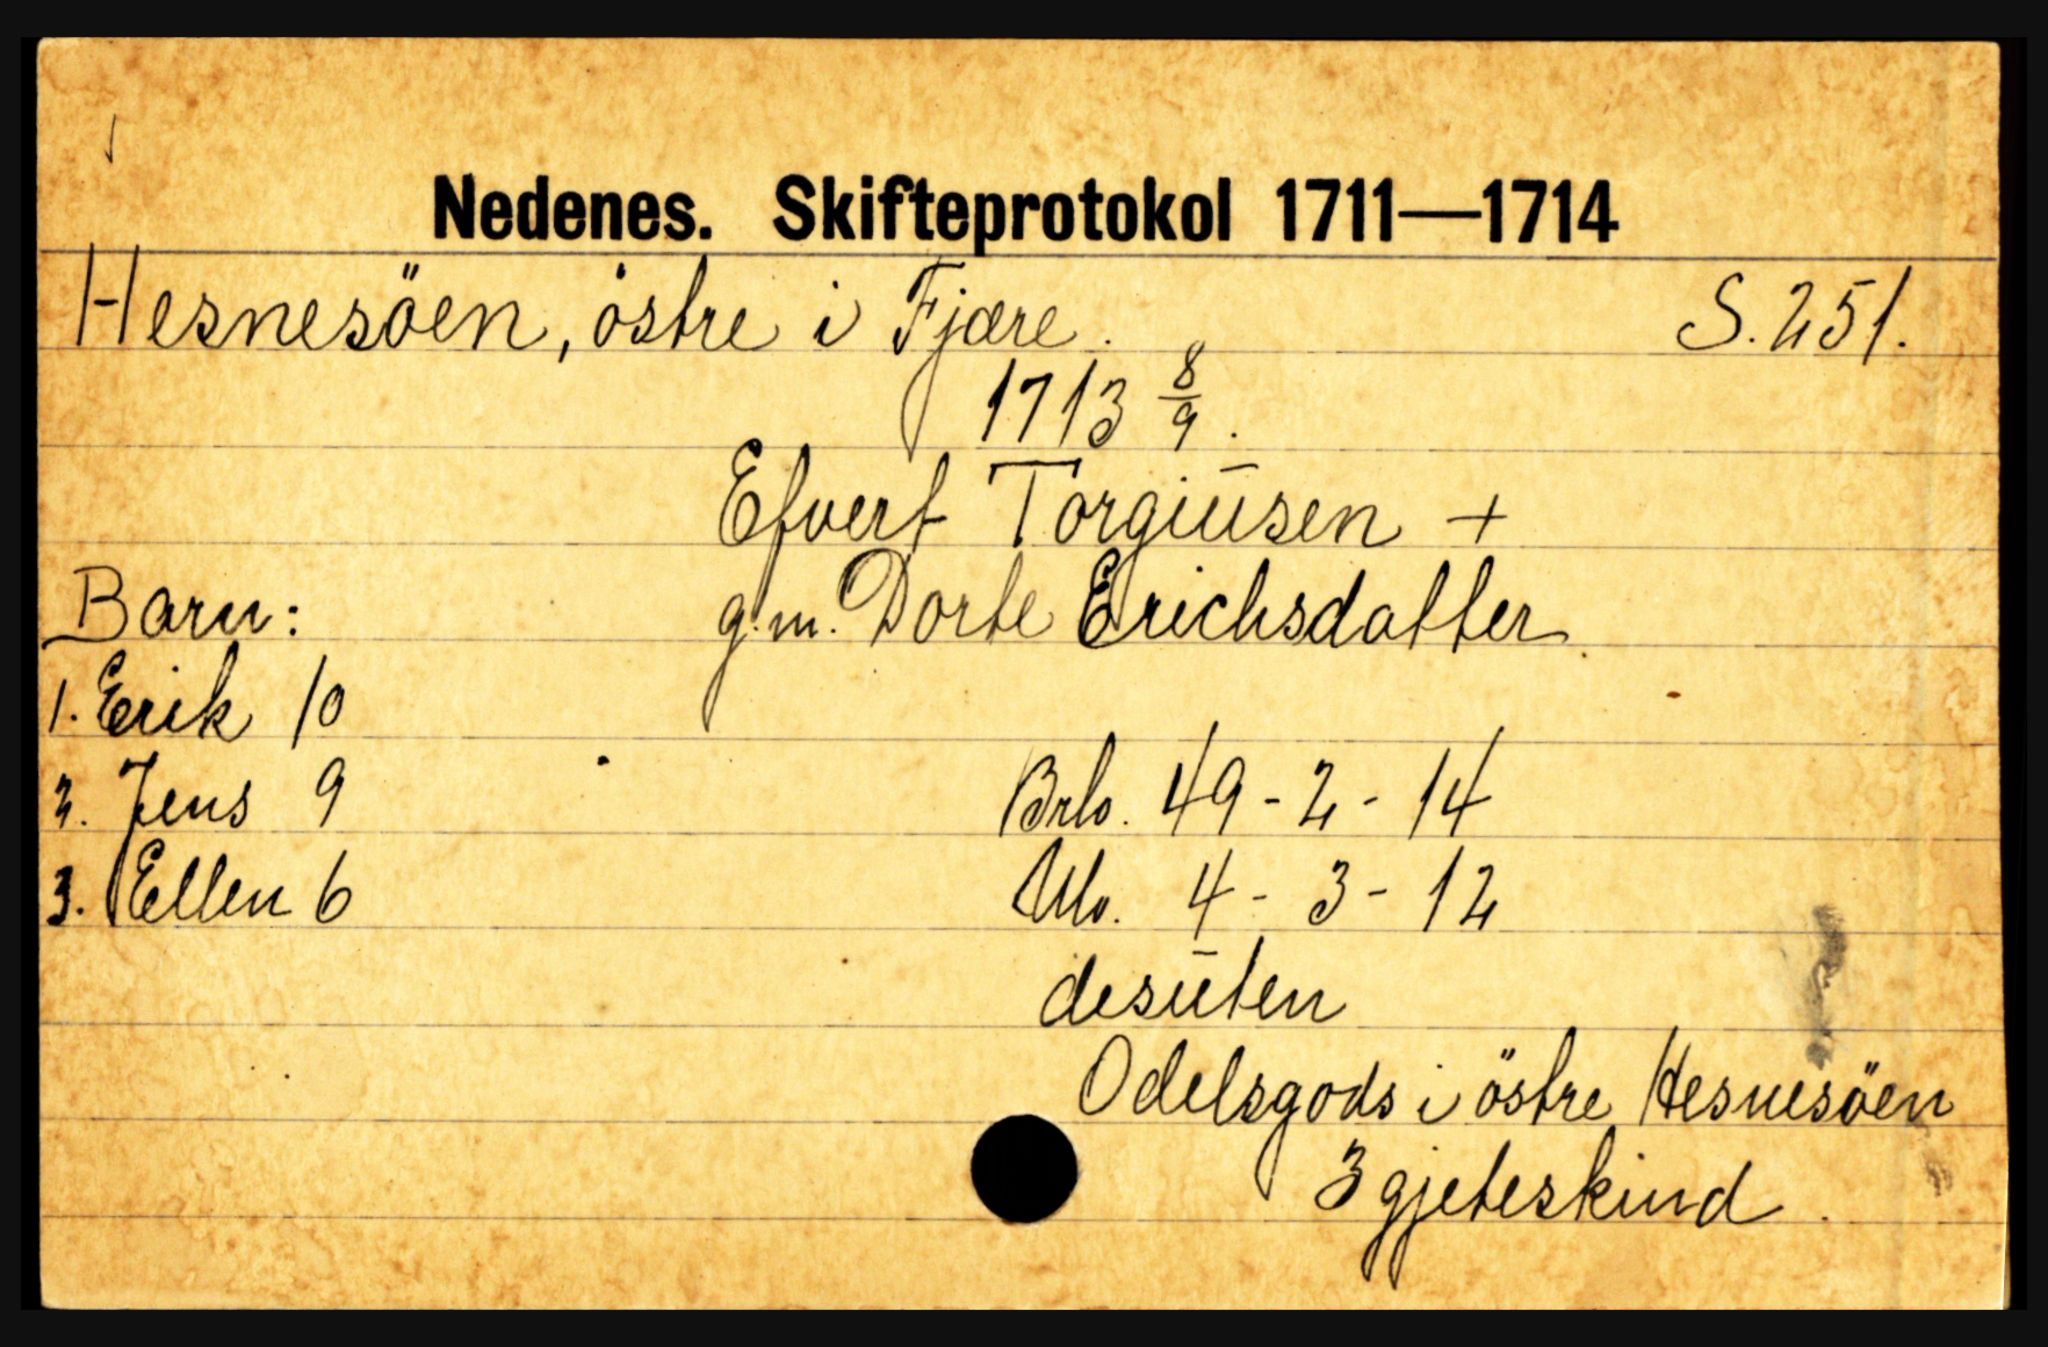 Nedenes. Skifteprotokol 1711—1714
Hesnesöen, östre i Fjære. S. 251.
1713 8/9.
Efvert Torgiusen +
g.m. Dorte Erichsdatter
Barn:
1. Erik 10
2. Jens 9
3. Ellen 6
Brb. 49 - 2 - 14
Ulo. 4 - 3 - 12
desuten
Odelsgods i östre Hesnesöen
3 gjeteskind.